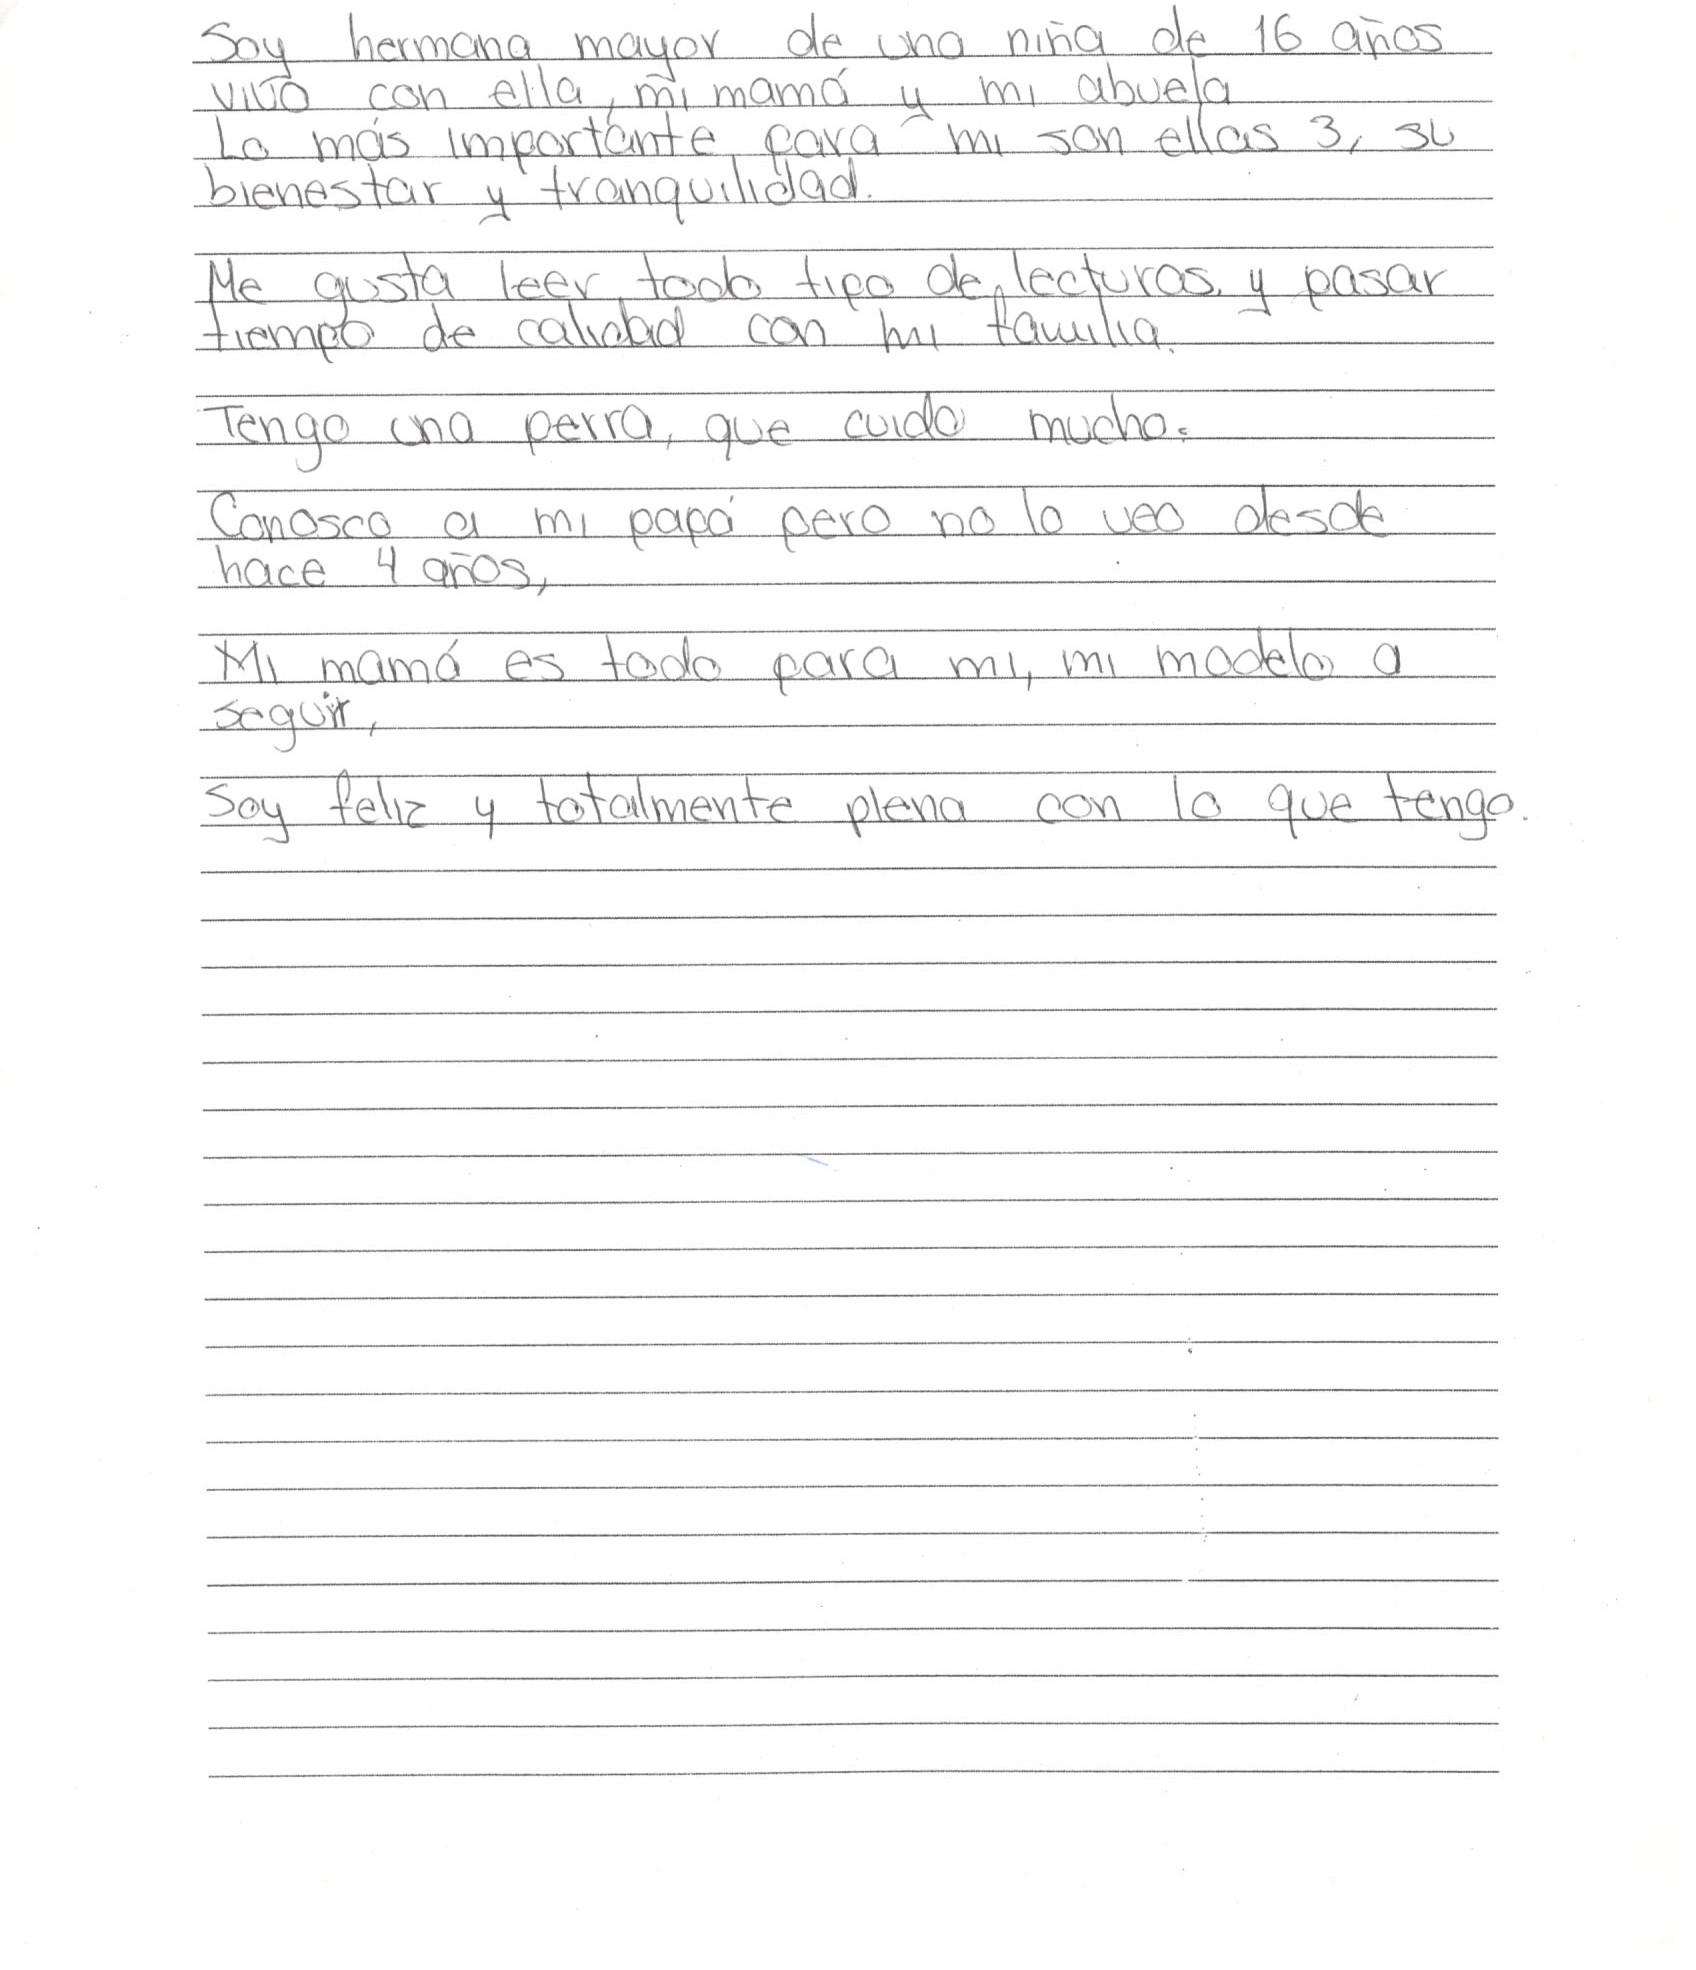 Soy hermana mayor de una niña de 16 años
vivo con ella, mi mamá y mi abuela
Lo más importante para mi son ellas 3, su
bienestar y tranquilidad.
Me gusta leer todo tipo de lecturas y pasar
tiempo de calidad con mi familia.
Tengo una perra, que cuido mucho.
Conosco a mi papá pero no lo veo desde
hace 4 años,
Mi mamá es todo para mi, mi modelo a
seguir,
Soy feliz y totalmente plena con lo que tengo.